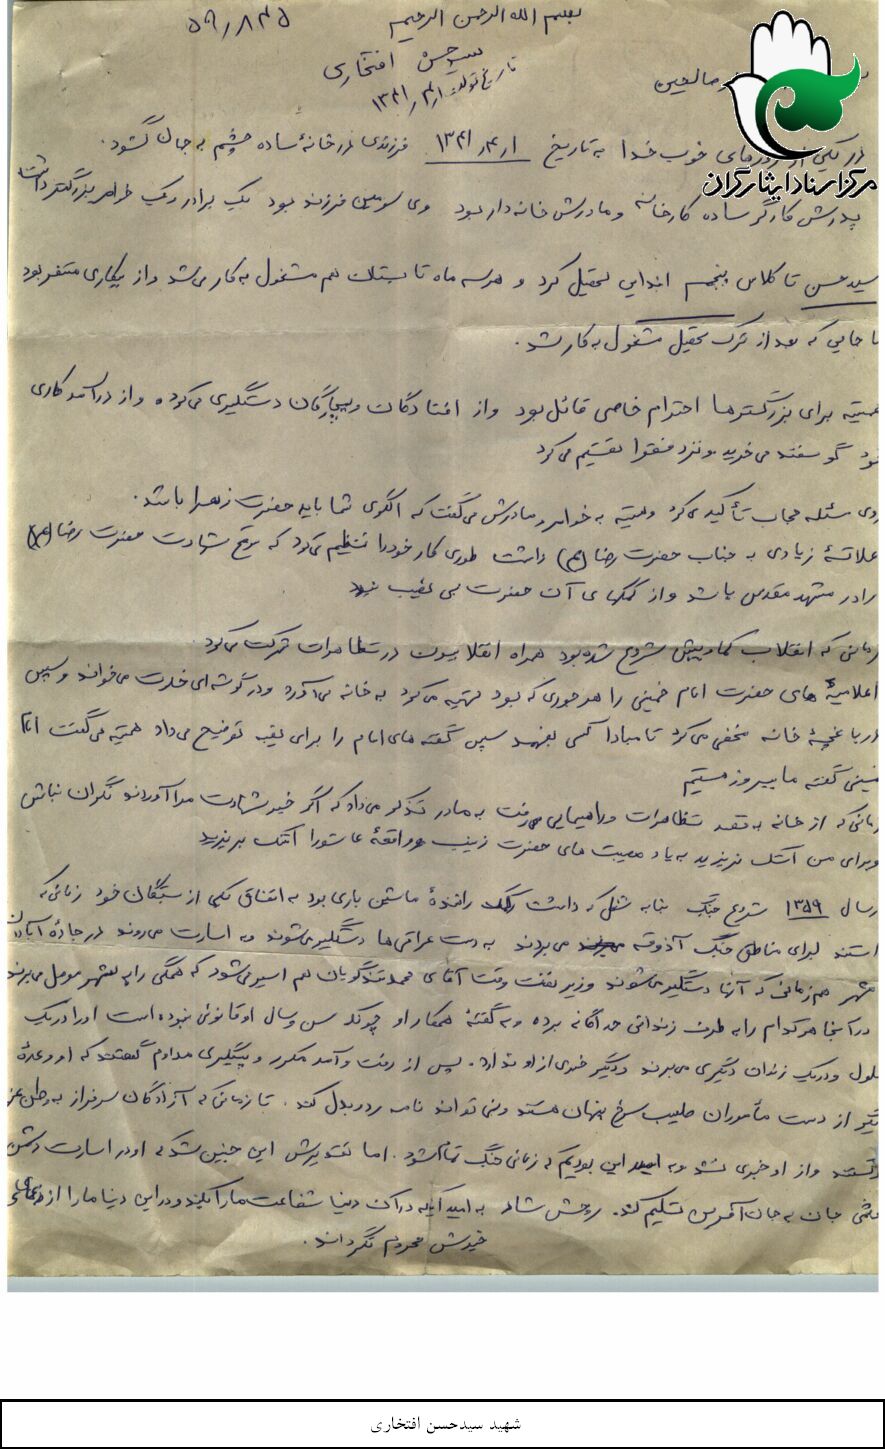 ۵۹٫۸۴۵
بسم الله الرحمن الرحیم
سید حسن افتخاری
تاریخ تولد: ۱ر۴ر۱۳۴۱
صالحین
مرکز اسناد ایثارگران
در یکی از روزهای خوب خدا به تاریخ ۱ر۴ر۱۳۴۱ فرزندی در خانهٔ ساده چشم به جهان گشود.
پدرش کارگر ساده کارخانه و مادرش خانه دار بود وی سومین فرزند بود یک برادر و یک خواهر بزرگتر داشت
سید حسن تا کلاس پنجم ابتدایی تحصیل کرد و هر سه ماه تابستان هم مشغول به کار می شد و از بیکاری متنفر بود
تا جایی که بعد از ترک تحصیل مشغول به کار شد.
همیشه برای بزرگترها احترام خاصی قائل بود و از افتادگان و بیچارگان دستگیری می کرد و از درآمد کاری
خود گوسفند می خرید و نزد فقرا تقسیم می کرد
روی مسئله حجاب تأکید می کرد و همیشه به خواهر و مادرش می گفت که الگوی شما باید حضرت زهرا باشد.
علاقهٔ زیادی به جناب حضرت رضا (ع) داشت طوری کار خود را تنظیم می کرد که موقع شهادت حضرت رضا (ع)
را در مشهد مقدس باشد و از کمکهای آن حضرت بی نصیب نبود
زمانی که انقلاب کم و بیش شروع شده بود همراه انقلابیون در تظاهرات شرکت می کرد
اعلامیه های حضرت امام خمینی را هر جوری که بود تهیه می کرد به خانه می آورد و در گوشه ای خلوت می خواند و سپس
در باغچهٔ خانه مخفی می کرد تا مبادا کسی بفهمد سپس گفته های امام را برای بقیه توضیح می داد همیشه می گفت امام
خمینی گفته ما پیروز هستیم
زمانی که از خانه به قصد تظاهرات و راهپیمایی می رفت به مادر تذکر می داد که اگر خبر شهادت مرا آوردند نگران نباش
و برای من اشک نریزید به یاد مصیبت های حضرت زینب و واقعهٔ عاشورا اشک بریزید
در سال ۱۳۵۹ شروع جنگ بنا به شغلی که داشت رانندهٔ ماشین باری بود به اتفاق یکی از بستگان خود زمانی که
داشتند برای مناطق جنگ آذوقه می بردند به دست عراقی ها دستگیر می شوند و به اسارت می روند در جادهٔ آبادان
شهر هم زمانی که آنها دستگیر می شوند وزیر نفت وقت آقای محمد تندگویان هم اسیر می شود که همگی را به شهر موصل می برند
در آنجا هر کدام را به طرف زندانی جداگانه برده و به گفتهٔ همکار او چونکه سن و سال او قانونی نبوده است او را در یک
سلول و در یک زندان دیگری می برند و دیگر خبری از او ندارد. پس از رفت و آمد مکرر و پیگیری مداوم گفتند که او وعدهٔ
دیگر از دست مأموران صلیب سرخ پنهان هستند و نمی تواند نامه رد و بدل کند. تا زمانی که آزادگان سرفراز به وطن عزیز
برگشتند و از او خبری نشد و به امید این بودیم که زمانی جنگ تمام شود. اما تقدیرش این چنین شد که او در اسارت دشمن
بعثی جان به جان آفرین تسلیم کند. روحش شاد به امید آنکه در آن دنیا شفاعت ما را بکند و در این دنیا ما را از دعاهای
خیرش محروم نگرداند.
شهید سیدحسن افتخاری